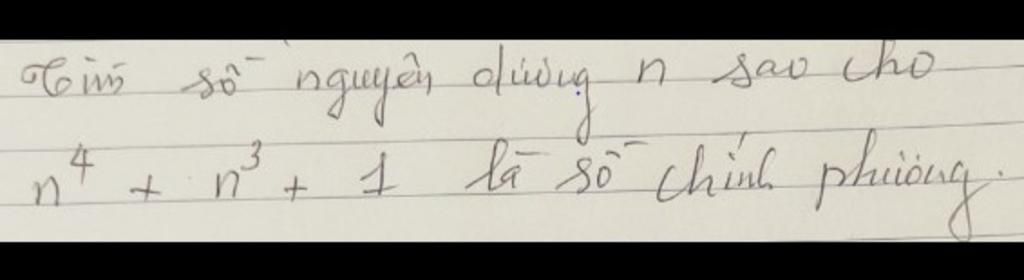 Tìm số nguyên dương n sao cho
n⁴ + n³ + 1 là số chính phương.